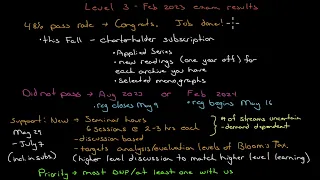 Level 3 - Feb 2023 exam results
48% pass rate → Congrats. Job done!
• this Fall - charterholder subscription
• Applied Series
• new readings (one year off) for each archive you have
• Selected monographs
Did not pass → Aug 2023 or Feb 2024
• reg closes May 9
• reg begins May 16
Support: New → Seminar hours
May 29 - July 7
(incl. in subs)
6 Sessions @ 2-3 hrs each
- discussion based
- targets analysis/evaluation levels of Bloom's Tax.
(higher level discussion to match higher level learning)
# of streams uncertain
- demand dependent
Priority → most DNP/at least one with us